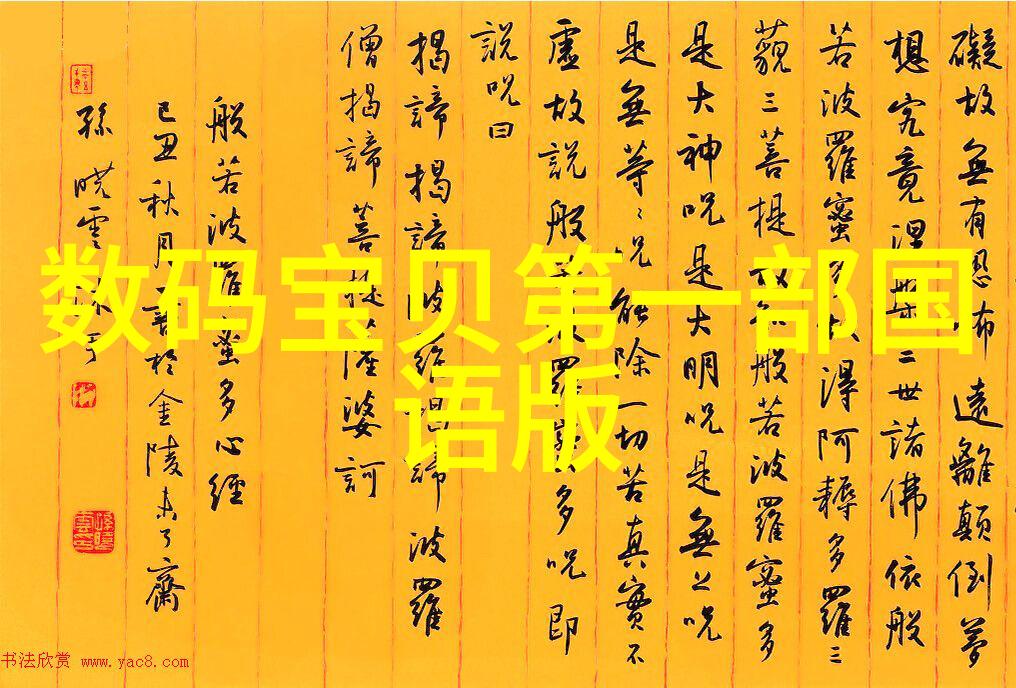 数码宝贝第一部国
语版
礙故無有恐怖遠離顛倒夢
想究竟涅槃三世諸佛依般
若波羅蜜多故得阿耨多羅三
藐三菩提故知般若波羅蜜多
是大神呪是大明呪是無上呪
是無等〻呪能除一切苦真實不
虛故說般若波羅蜜多呪即
說呪曰
揭諦揭諦波羅揭諦波羅
僧揭諦菩提薩婆訶
般若波羅蜜多心經
己丑秋月書於金陵未了齋
孫曉雲
书法欣赏 www.yac8.com